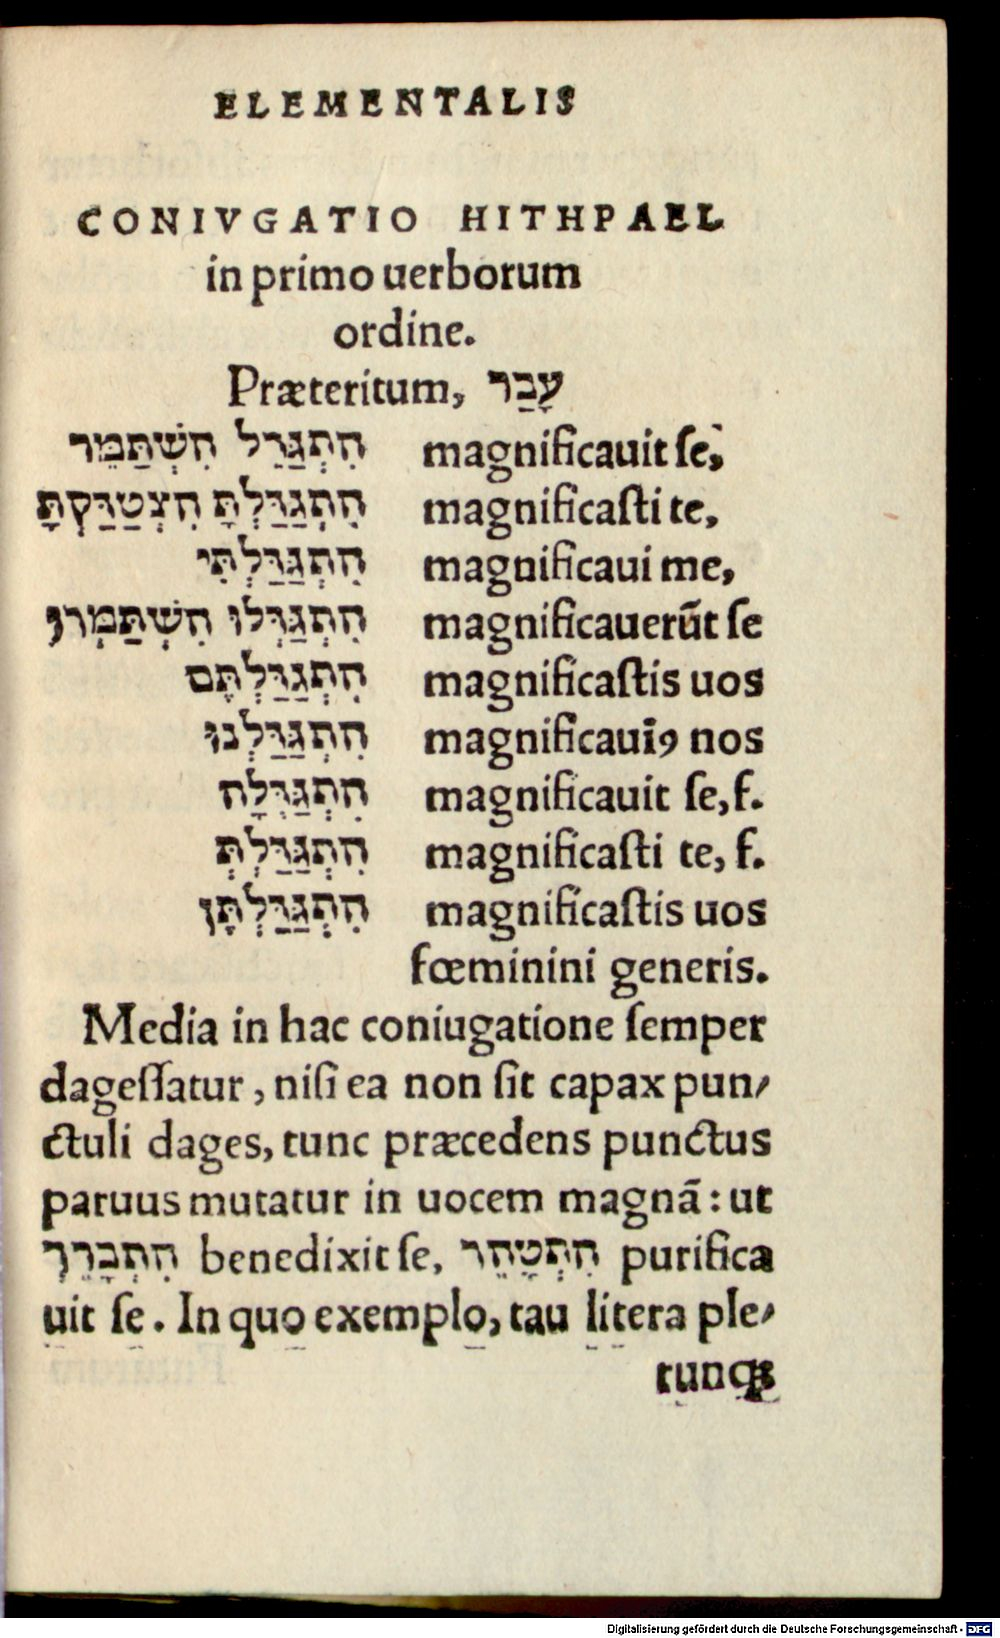 ELEMENTALIS
CONIVGATIO HITHPAEL
in primo uerborum
ordine.
Præteritum, עָבַר
הִתְגַּדֵּל הִשְׁתַּמֵּר magnificauit ſe,
הִתְגַּדַּלְתָּ הִצְטַדַּקְתָּ magnificaſti te,
הִתְגַּדַּלְתִּי magnificaui me,
הִתְגַּדְּלוּ הִשְׁתַּמְּרוּ magnificauerūt ſe
הִתְגַּדַּלְתֶּם magnificaſtis uos
הִתְגַּדַּלְנוּ magnificauīꝰ nos
הִתְגַּדְּלָה magnificauit ſe, f.
הִתְגַּדַּלְתְּ magnificaſti te, f.
הִתְגַּדַּלְתָּן magnificaſtis uos
fœminini generis.
Media in hac coniugatione ſemper
dageſſatur, niſi ea non ſit capax pun⸗
ctuli dages, tunc præcedens punctus
paruus mutatur in uocem magnā: ut
הִתְבָּרֵךְ benedixit ſe, הִתְטָהֵר purifica
uit ſe. In quo exemplo, tau litera ple⸗
runqꝫ
Digitalisierung gefördert durch die Deutsche Forschungsgemeinschaft - DFG